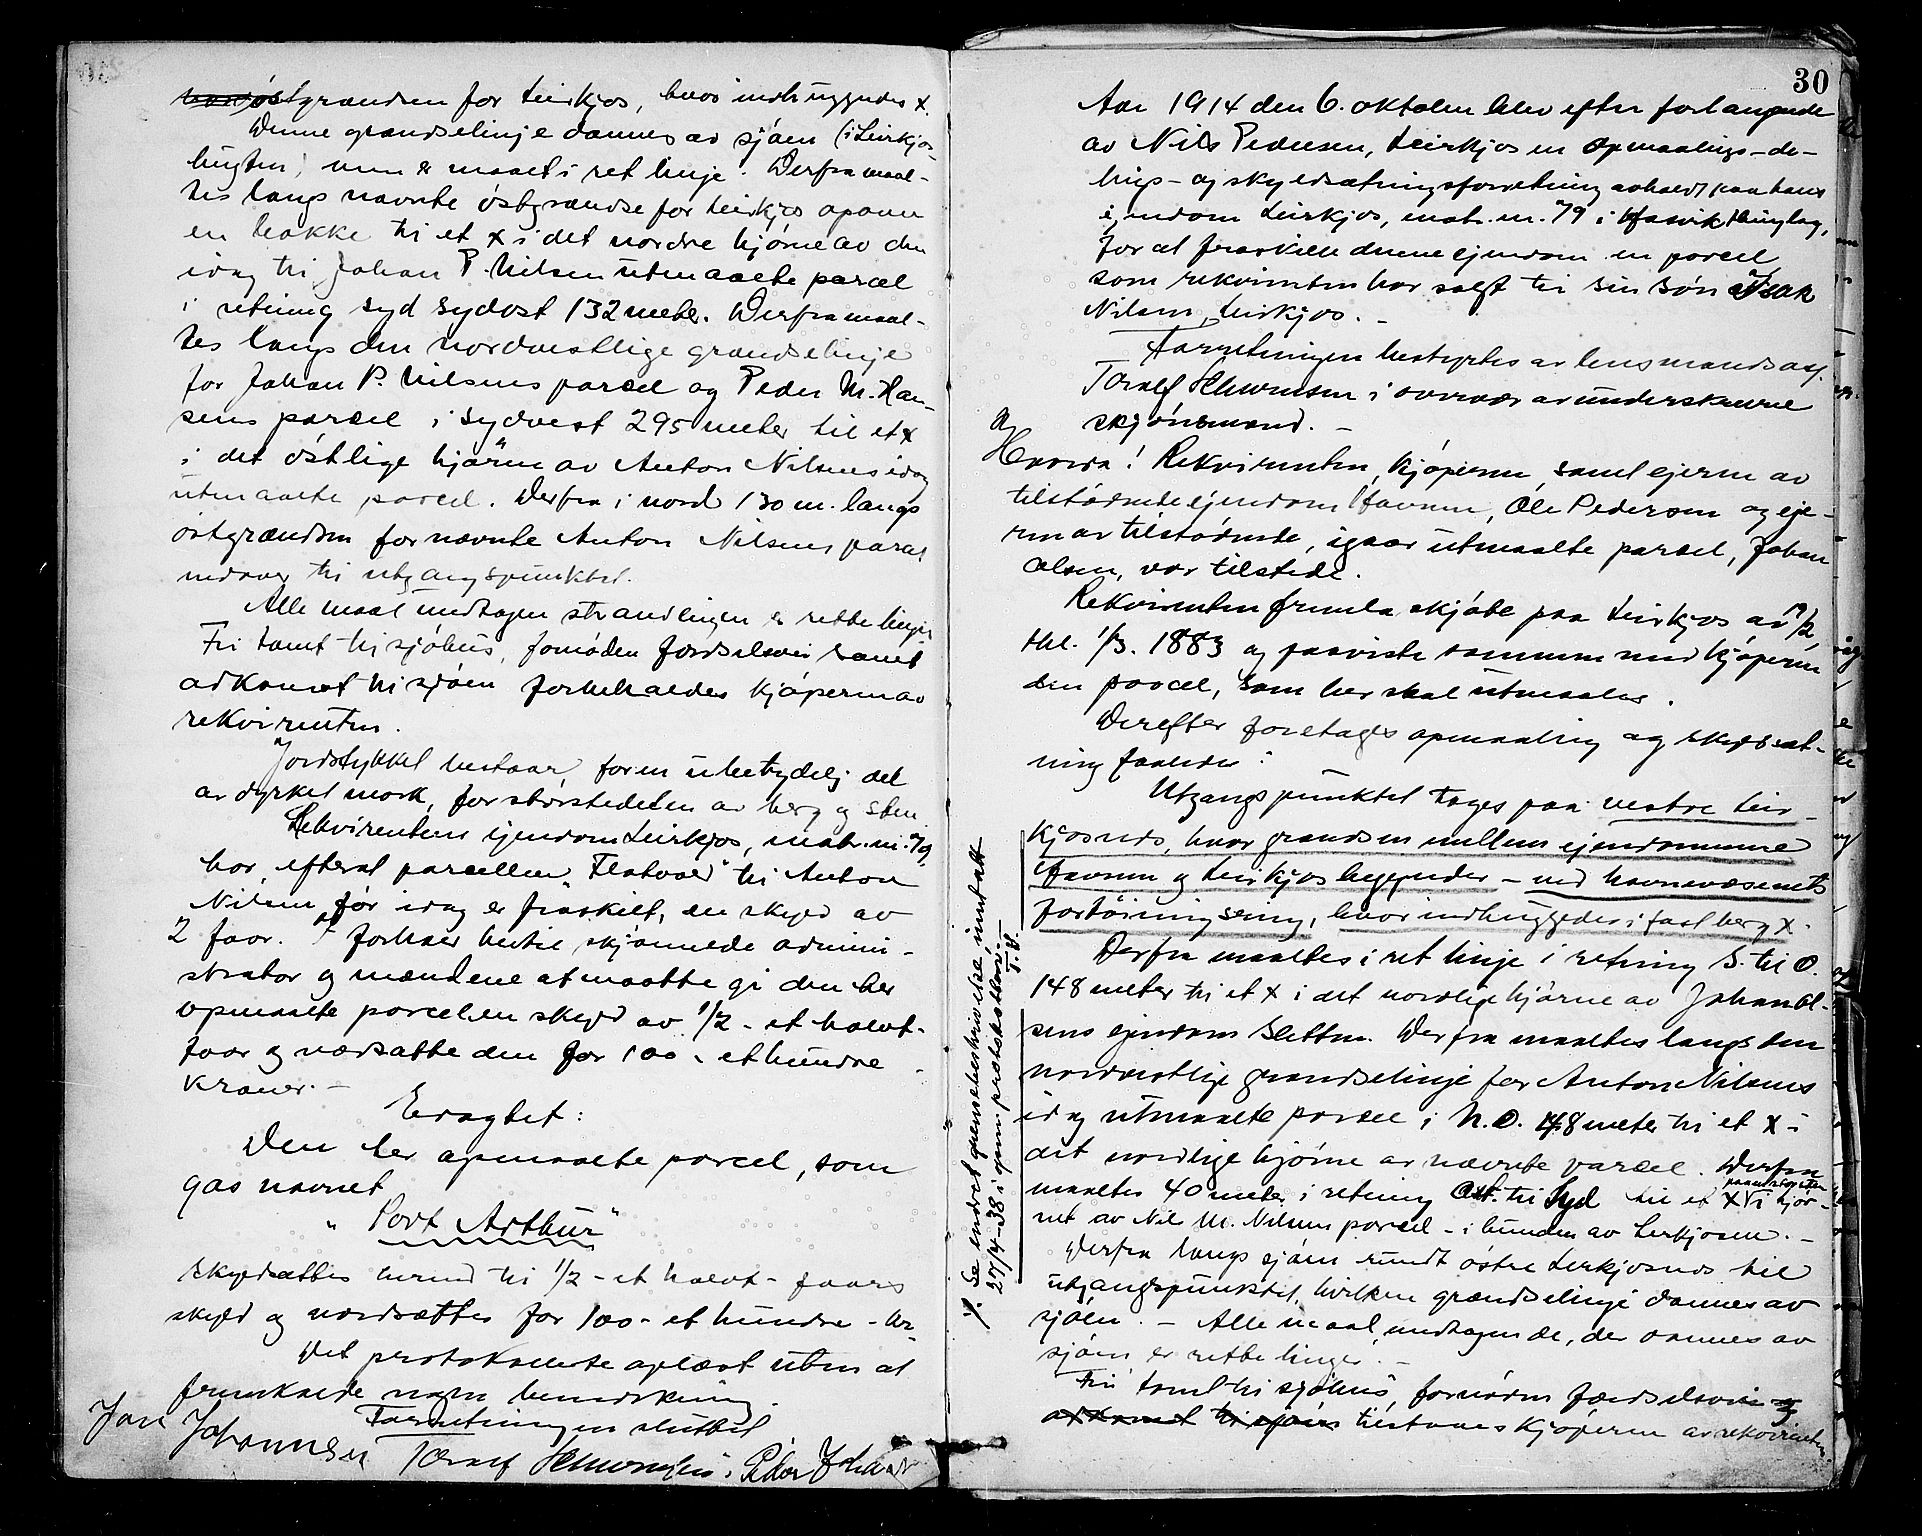 østgrændsen for Leirkjos, hvor indhuggedes x.
Denne grændselinje dannes av sjøen (i Leirkjos-
bugten, men er maalt i ret linje. Derfra maal-
tes langs nævnte østgrændse for Leirkjos opover
en bakke til et x i det nordre hjørne av den
idag til Johan P. Nilsen utmaalte parcel
i retning syd sydost 132 meter. Derfra maal-
tes langs den nordvestlige grændselinje
for Johan P. Nilsens parcel og Peder M. Han-
sens parcel i sydvest 295 meter til et x
i det østlige hjørne av Anton Nilsens idag
utmaalte parcel. Derfra i nord 130 m. langs
østgrændsen for nævnte Anton Nilsens parcel
nedover til utgangspunktet.
Alle maal undtagen strandlinjen er rette linjer
Fri tomt til sjøhus, fornøden færdselsvei samt
adkomst til sjøen forbeholdes kjøperen av
rekvirenten.
Jordstykket bestaar for en ubetydelig del
av dyrket mark, for størstedelen av berg og sten.
Rekvirentens eiendom Leirkjos, matr. nr. 79,
har, efterat parcellen "Flatvold" til Anton
Nilsen før idag er fraskilt, en skyld av
2 føor. I forhold hertil skjønnede admini-
strator og mændene at maatte gi den her
opmaalte parcel en skyld av 1/2 - et halvt -
føor og værdsatte den for 100 - et hundre
kroner. -
Eragtet:
Den her opmaalte parcel, som
gas navnet
"Port Arthur"
skyldsættes herved til 1/2 - et halvt - føors
skyld og værdsættes for 100 - et hundre - kr
Det protokollerte oplæst uten at
fremkalde nogen bemerkning.
Forretningen sluttet
Jan Johannsen Toralf Peder Johan
30
Aar 1914 den 6. oktober blev efter forlangende
av Nils Pedersen, Leirkjos en opmaalings-de-
lings- og skyldsætningsforretning avholdt paa hans
ejendom Leirkjos, matr. nr. 79 i Hasvik thinglag,
for at fraskille denne ejendom en parcel
som rekvirenten har solgt til sin søn Isak
Nilsen, Leirkjos. -
Forretningen bestyrtes av lensmandsass.
Toralf i overvær av underskrevne
skjønsmænd. -
Hvorda! Rekvirenten, kjøperen, samt ejeren av
tilstødende ejendom Havnen, Ole Pedersen og eje-
ren av tilstødende, igaar utmaalte parcel, Johan
Olsen, var tilstede.
Rekvirenten fremla skjøte paa Leirkjos av 19/2
thl. 1/3. 1883 og paaviste sammen med kjøperen
den parcel, som her skal utmaales.
Derefter foretages opmaaling og skyldsæt-
ning saaledes:
Utgangspunktet tages paa vestre Leir-
kjosnes, hvor grændsen mellem ejendommene
Havnen og Leirkjos begynder - ved havnevæsenets
fortøiningsring, hvor indhuggedes i fast berg x.
Derfra maaltes i ret linje i retning S. til O.
148 meter til et x i det nordlige hjørne av Johan Ol-
sens ejendom Sletten. Derfra maaltes langs den
nordvestlige grændselinje for Anton Nilsens
idag utmaalte parcel i N.O. 48 meter til et x i
det nordlige hjørne av nævnte parcel. Derfra
maaltes 40 meter i retning Øst. til Syd til et x i hjør-
net av Nils M. Nilsens parcel - i bunden av Leirkjosen. -
Derfra langs sjøen rundt østre Leirkjosnes til
utgangspunktet, hvilken grændselinje dannes av
sjøen. - Alle maal, undtagen de, der dannes av
sjøen er rette linjer. -
Fri tomt til sjøhus, fornøden færdselsvei og
adkomst til sjøen tilstaaes kjøperen av rekvirenten.
%. Se endret grensebeskrivelse inntatt
27/4-38 i opm. protokollen. T.S.